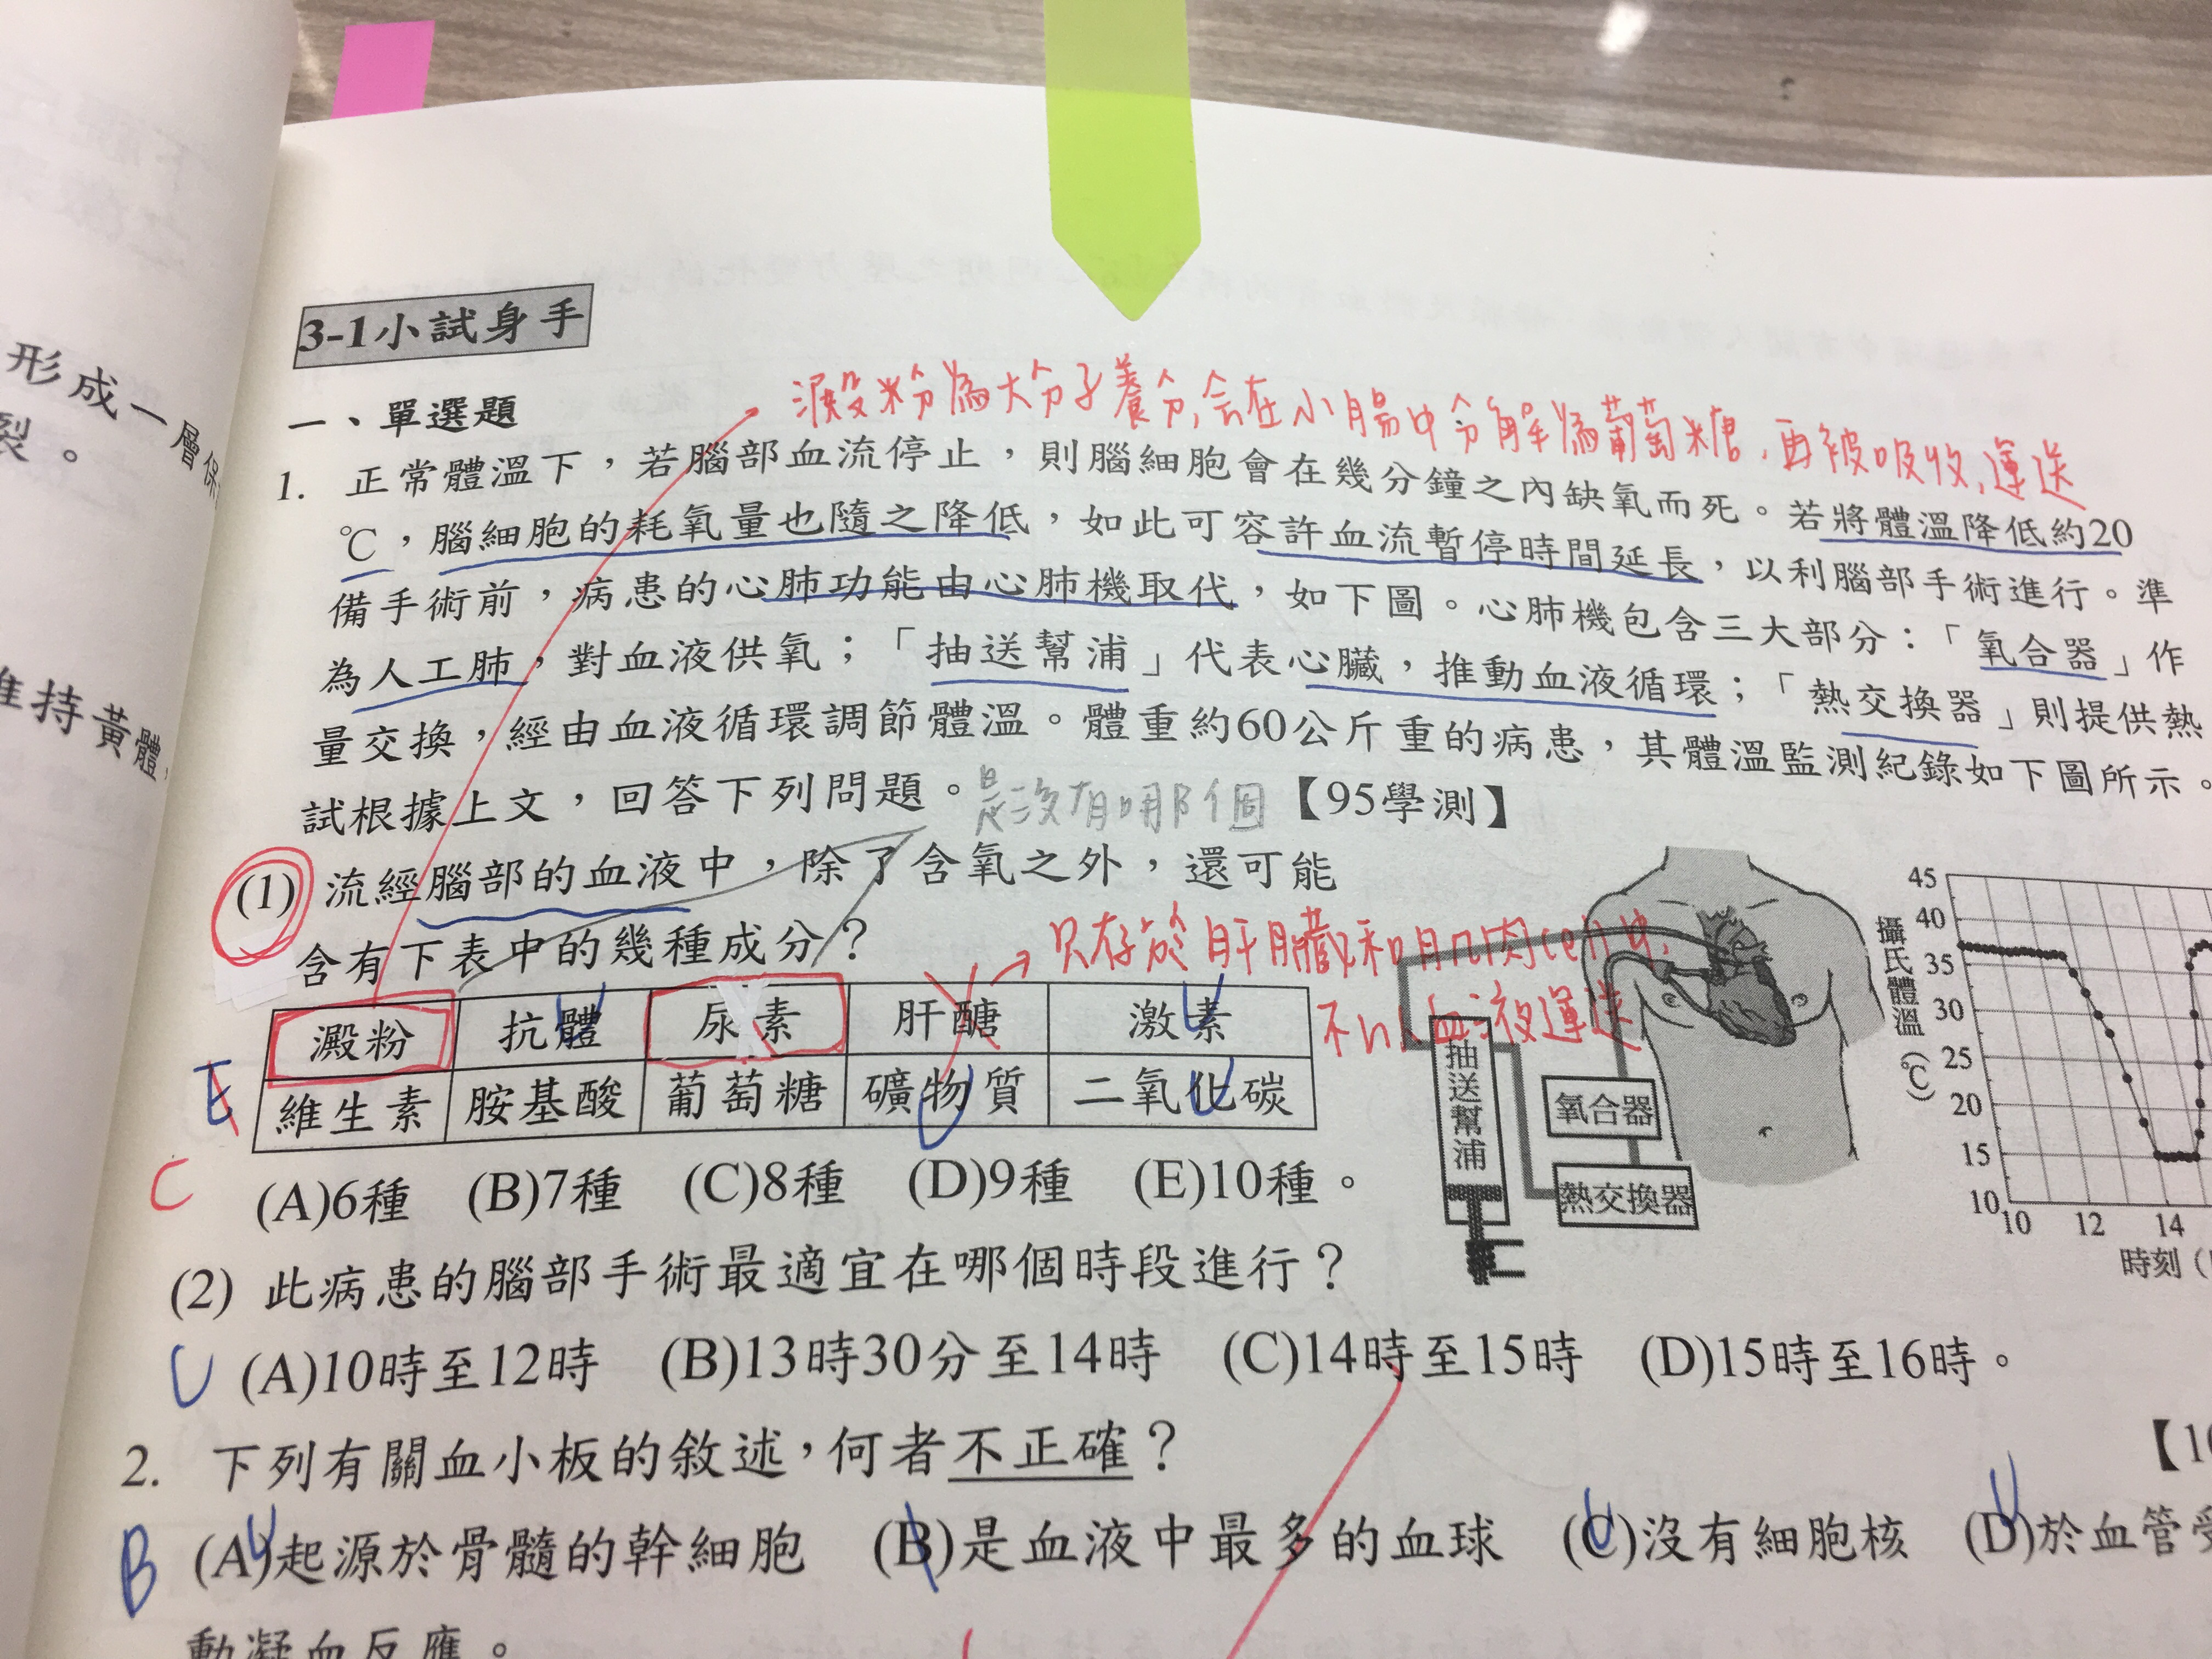 形成一層保
裂。
維持黃體,
3-1小試身手
一、單選題
澱粉為大分子養分,會在小腸中分解為葡萄糖.再被吸收,運送
1. 正常體溫下，若腦部血流停止，則腦細胞會在幾分鐘之內缺氧而死。若將體溫降低約20
℃，腦細胞的耗氧量也隨之降低，如此可容許血流暫停時間延長，以利腦部手術進行。準
備手術前，病患的心肺功能由心肺機取代，如下圖。心肺機包含三大部分：「氧合器」作
為人工肺，對血液供氧；「抽送幫浦」代表心臟，推動血液循環；「熱交換器」則提供熱
量交換，經由血液循環調節體溫。體重約60公斤重的病患，其體溫監測紀錄如下圖所示。
試根據上文，回答下列問題。是沒有哪個【95學測】
(1) 流經腦部的血液中，除了含氧之外，還可能
含有下表中的幾種成分？
只存於肝臟和肌肉cell中.
不以血液運送
澱粉 抗體 尿素 肝醣 激素
E 維生素 胺基酸 葡萄糖 礦物質 二氧化碳
C (A)6種 (B)7種 (C)8種 (D)9種 (E)10種。
抽送幫浦
氧合器
熱交換器
攝氏體溫(℃)
45
40
35
30
25
20
15
10
10 12 14
時刻(
(2) 此病患的腦部手術最適宜在哪個時段進行？
C (A)10時至12時 (B)13時30分至14時 (C)14時至15時 (D)15時至16時。
2. 下列有關血小板的敘述，何者不正確？ 【10
B (A)起源於骨髓的幹細胞 (B)是血液中最多的血球 (C)沒有細胞核 (D)於血管受
動凝血反應。